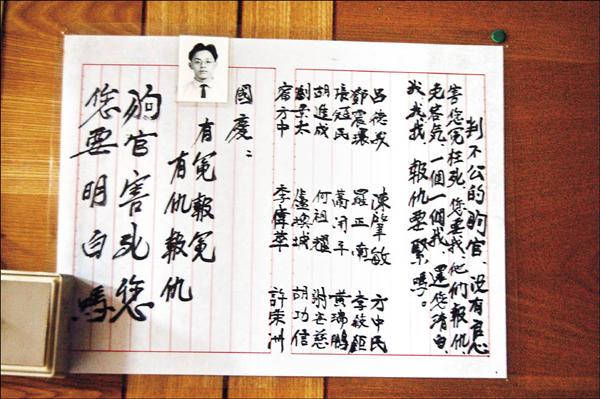 判不公的狗官、沒有良心
害您冤枉死、您要找他們報仇、
免客氣、一個一個找、還您清白、
找找找、報仇要緊嗎。
呂德 陳肇敏 方中民
鄧震環 羅正南 李 鉅
張冠民 萬 平 黃瑞鵬
胡進成 何祖耀 謝 慈
劉景太 盧 城 胡功信
甯方中 李偉華 許榮洲
國慶：
有冤報冤
有仇報仇
狗官害死您
您要明白嗎